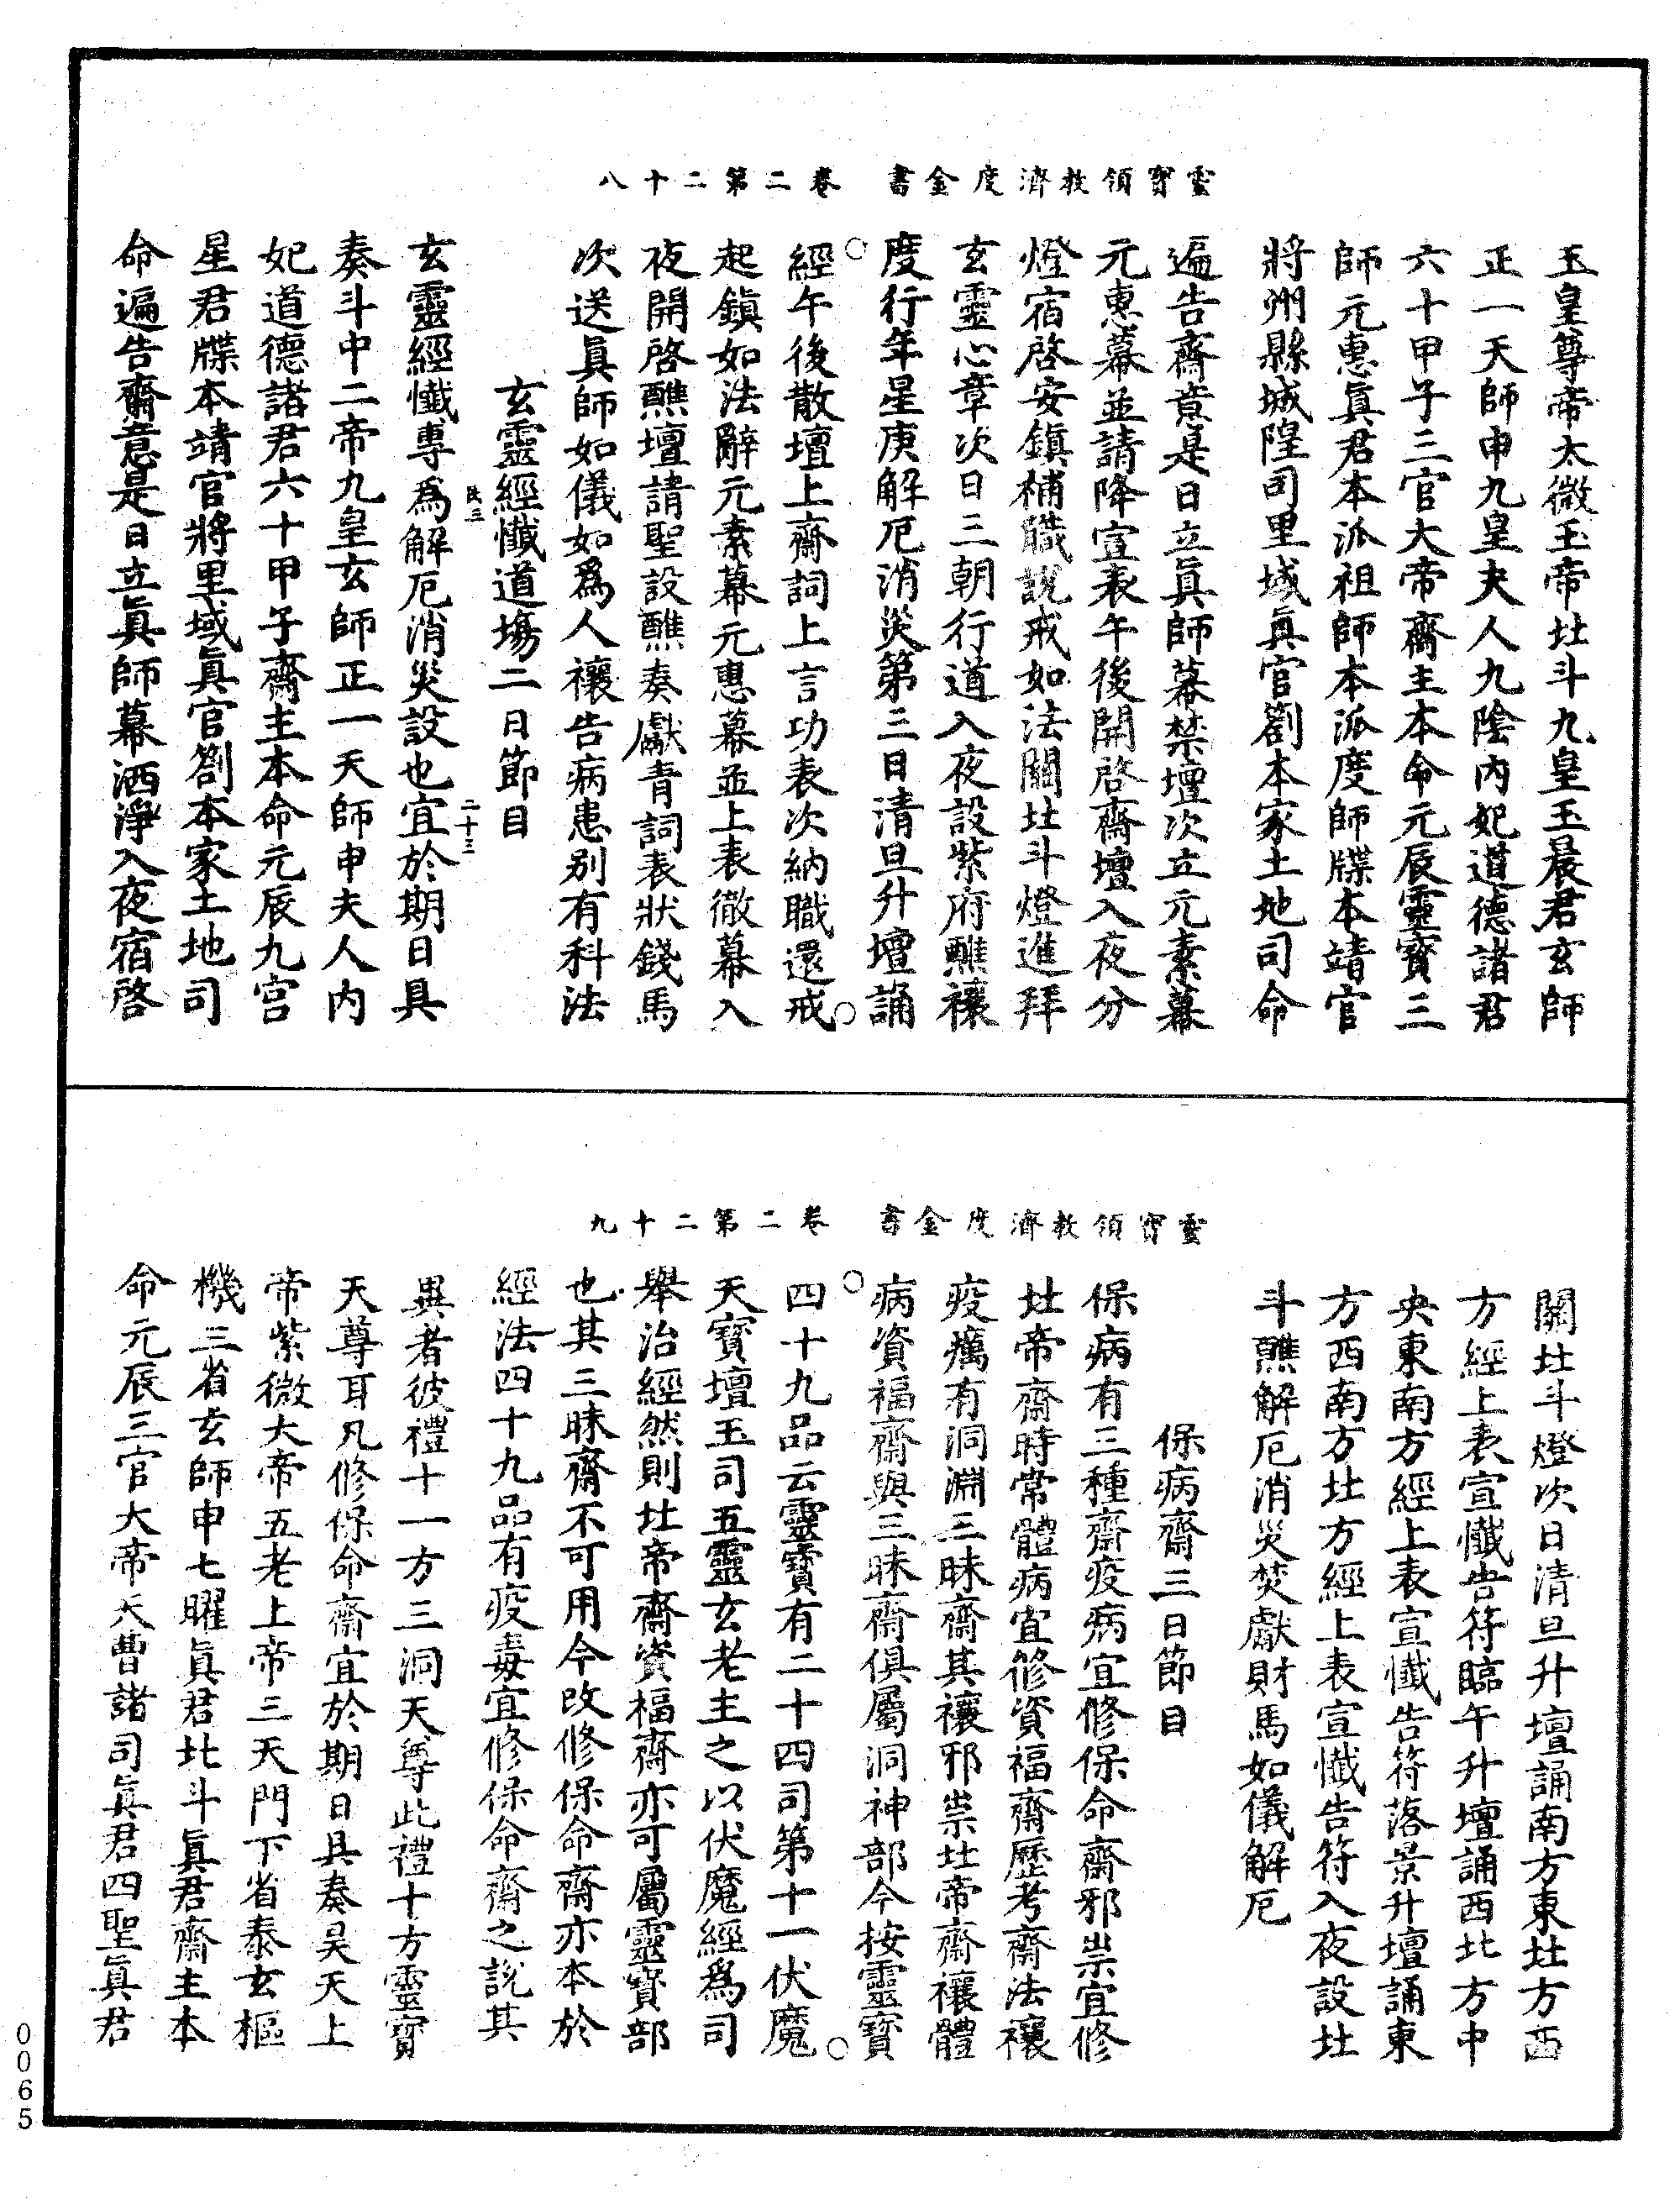 靈寶領教濟度金書　卷二　第二十八
玉皇尊帝太微玉帝北斗九皇玉晨君玄師
正一天師申九皇夫人九陰內妃道德諸君
六十甲子三官大帝齋主本命元辰靈寶三
師元惠真君本派祖師本派度師牒本靖官
將州縣城隍司里域真官劄本家土地司命
遍告齋意是日立真師幕禁壇次立元素幕
元惠幕並請降宣表午後開啓齋壇入夜分
燈宿啓安鎮補職說戒如法關北斗燈進拜
玄靈心章次日三朝行道入夜設紫府醮禳
度行年星庚解厄消災第三日清旦升壇誦
經午後散壇上齋詞上言功表次納職還戒
起鎮如法辭元素幕元惠幕並上表徹幕入
夜開啓醮壇請聖設醮奏獻青詞表狀錢馬
次送真師如儀如爲人禳告病患别有科法
玄靈經懺道場二日節目
二十三
玄靈經懺專爲解厄消災設也宜於期日具
奏斗中二帝九皇玄師正一天師申夫人內
妃道德諸君六十甲子齋主本命元辰九宮
星君牒本靖官將里域真官劄本家土地司
命遍告齋意是日立真師幕洒淨入夜宿啓
靈寶領教濟度金書　卷二　第二十九
關北斗燈次日清旦升壇誦南方東北方西
方經上表宣懺告符臨午升壇誦西北方中
央東南方經上表宣懺告符落景升壇誦東
方西南方北方經上表宣懺告符入夜設北
斗醮解厄消災焚獻財馬如儀解厄
保病齋三日節目
保病有三種齋疫病宜修保命齋邪祟宜修
北帝齋時常體病宜修資福齋歷考齋法禳
疫癘有洞淵三昧齋其禳邪祟北帝齋禳體
病資福齋與三昧齋俱屬洞神部今按靈寶
四十九品云靈寶有二十四司第十一伏魔
天寶壇玉司五靈玄老主之以伏魔經爲司
舉治經然則北帝齋資福齋亦可屬靈寶部
也其三昧齋不可用今改修保命齋亦本於
經法四十九品有疫毒宜修保命齋之說其
異者彼禮十一方三洞天尊此禮十方靈寶
天尊耳凡修保命齋宜於期日具奏昊天上
帝紫微大帝五老上帝三天門下省泰玄樞
機三省玄師申七曜真君北斗真君齋主本
命元辰三官大帝天曹諸司真君四聖真君
0065